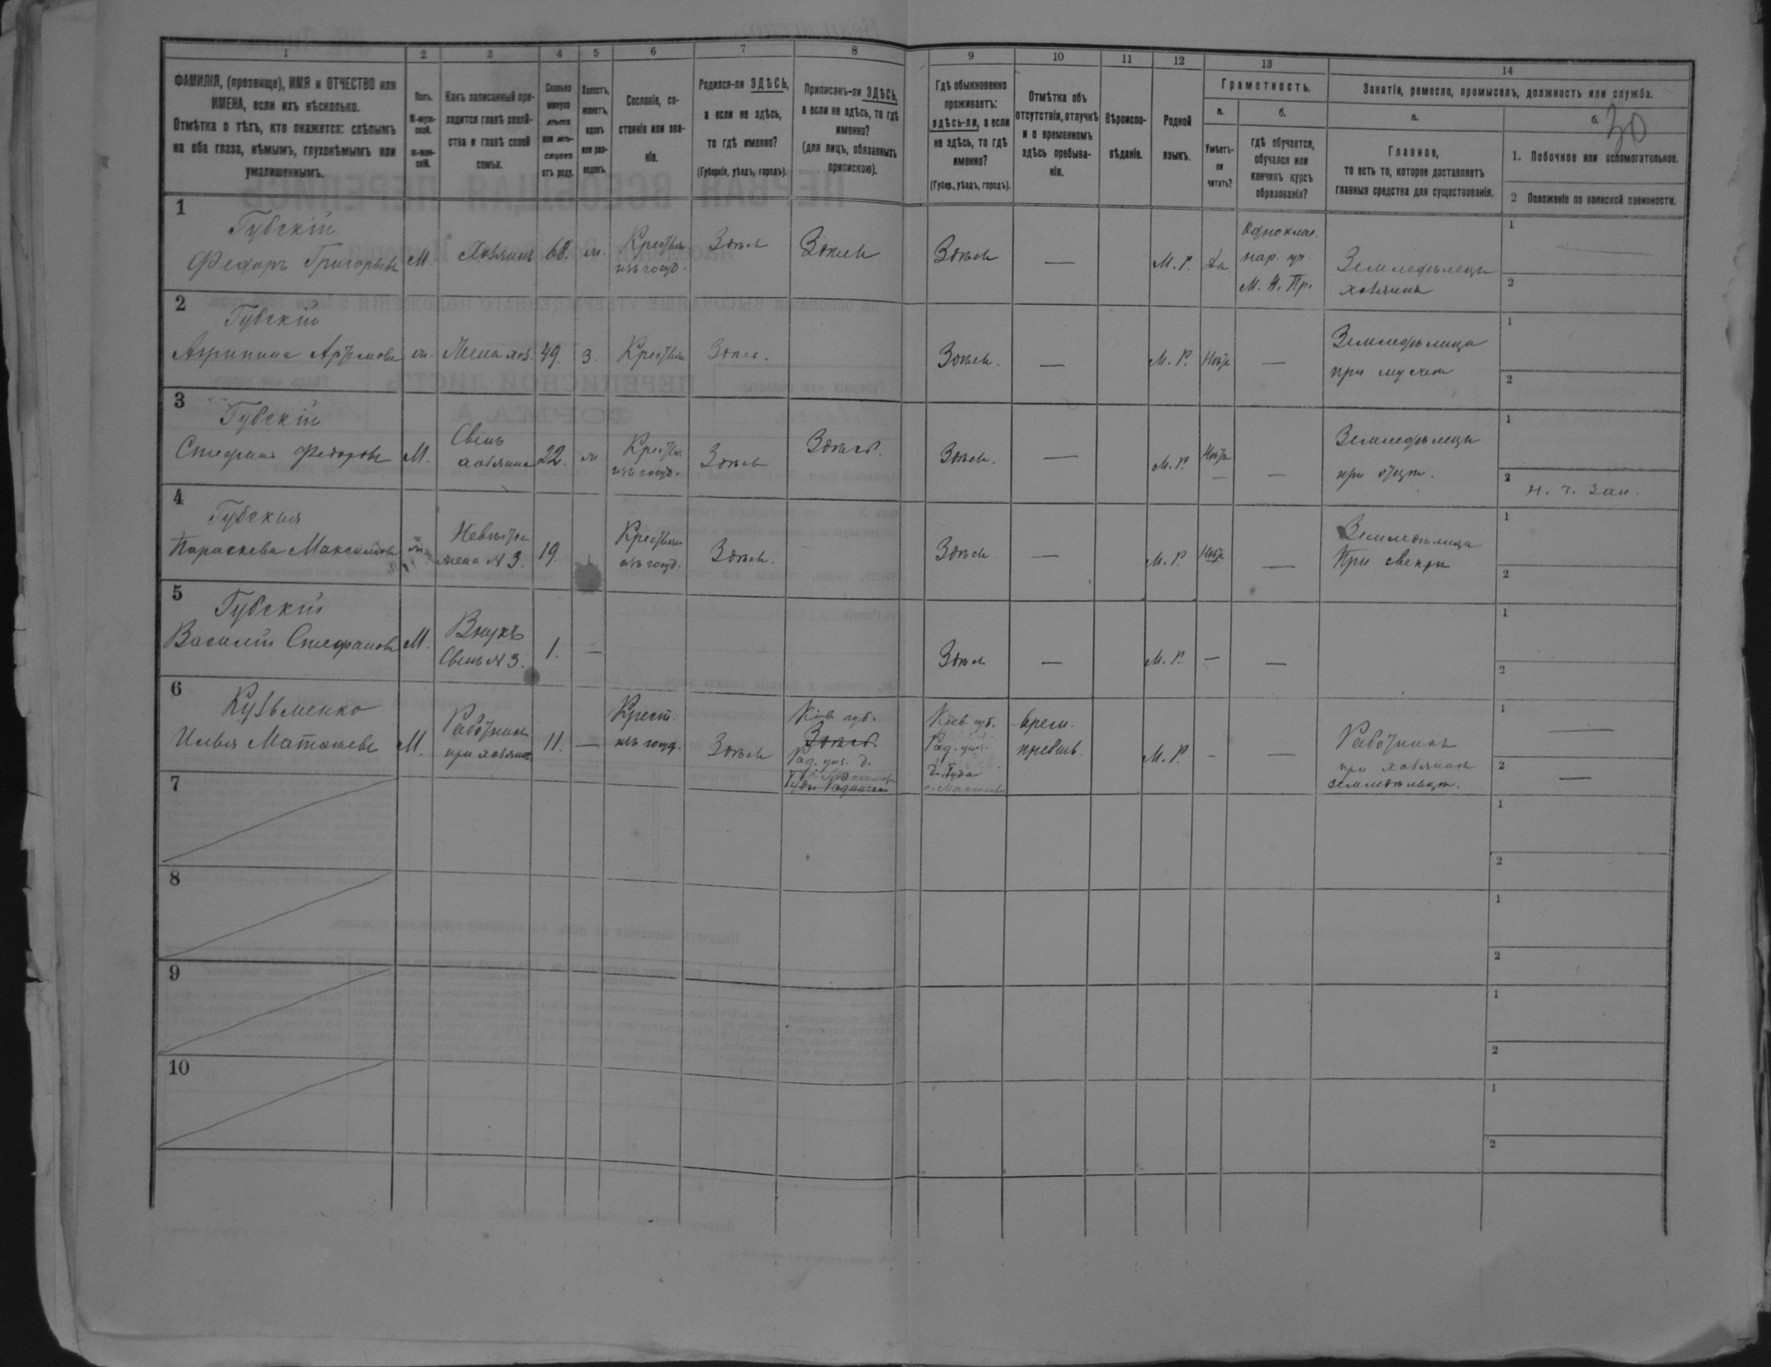 30
1 2 3 4 5 6 7 8 9 10 11 12 13 14
ФАМИЛІЯ, (прозвище), ИМЯ и ОТЧЕСТВО или
ИМЕНА, если ихъ нѣсколько.
Отмѣтка о тѣхъ, кто окажется: слѣпымъ
на оба глаза, нѣмымъ, глухонѣмымъ или
умалишеннымъ.
Полъ.
М-муж-
ской.
Ж-жен-
скій.
Какъ записанный при-
ходится главѣ хозяй-
ства и главѣ своей
семьи.
Сколько
минуло
лѣтъ
или мѣ-
сяцевъ
отъ роду.
Холостъ,
женатъ,
вдовъ
или раз-
веденъ.
Сословіе, со-
стояніе или зва-
ніе.
Родился-ли ЗДѢСЬ,
а если не здѣсь,
то гдѣ именно?
(Губернія, уѣздъ, городъ).
Приписанъ-ли ЗДѢСЬ,
а если не здѣсь, то гдѣ
именно?
(для лицъ, обязанныхъ
припискою).
Гдѣ обыкновенно
проживаетъ:
здѣсь-ли, а если
не здѣсь, то гдѣ
именно?
(Губер., уѣздъ, городъ).
Отмѣтка объ
отсутствіи, отлучкѣ
и о временномъ
здѣсь пребыва-
ніи.
Вѣроиспо-
вѣданіе.
Родной
языкъ.
Грамотность.
а.
Умѣетъ-
ли
читать?
б.
гдѣ обучается,
обучался или
кончилъ курсъ
образованія?
Занятія, ремесло, промыселъ, должность или служба.
а.
Главное,
то есть то, которое доставляетъ
главныя средства для существованія.
б.
1. Побочное или вспомогательное.
2 Положеніе по воинской повинности.
1
Губскій
Федоръ Григорьевъ М. Хозяинъ 60. ж. Крестьян. изъ госуд. Здѣсь Здѣсь Здѣсь — М. Р. Да
Одноклас.
нар. уч.
М. Н. Пр.
Земледѣлецъ
хозяинъ
1
2
2
Губскій
Агрипина Артемова ж. Жена хоз. 49. з. Крестьян. Здѣсь. Здѣсь. — М. Р. Нѣтъ —
Земледѣлица
при мужѣ
1
2
3
Губскій
Стефанъ Федоровъ М. Сынъ хозяина 22. ж. Крестьян. изъ госуд. Здѣсь Здѣсь. Здѣсь. — М. Р. Нѣтъ —
Земледѣлецъ
при отцѣ.
1
2 Н. ч. Зап.
4
Губская
Параскева Максимова ж. Невѣстка жена N 3. 19. Крестьян. изъ госуд. Здѣсь. Здѣсь. — М. Р. Нѣтъ —
Земледѣлица
При свекрѣ
1
2
5
Губскій
Василій Стефановъ М. Внукъ Сынъ N 3. 1. — Здѣсь — М. Р. — —
1
2
6
Кузьменко
Илья Матвѣевъ М. Работникъ при хозяинѣ 11. — Крест. изъ госуд. Здѣсь
Кіев. губ.
Здѣсь.
Рад. уѣз. д.
Кіев. губ.
Рад. уѣз.
д. Гута
врем.
пребыв.
М. Р. — —
Работникъ
при хозяинѣ
земледѣльцѣ.
1 —
2 —
7
1
2
8
1
2
9
1
2
10
1
2